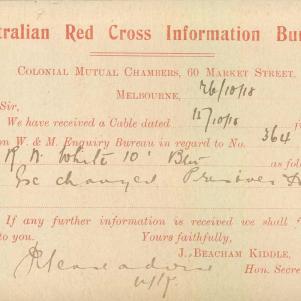 tralian Red Cross Information Bu
COLONIAL MUTUAL CHAMBERS, 60 MARKET STREET,
MELBOURNE, 26/10/18
Sir,
We have received a Cable dated 15/10/18
on W. & M. Enquiry Bureau in regard to No. 364
R. W. White 10' Bn as fol
Exchanged Prisoner
If any further information is received we shall
to you. Yours faithfully,
J. BEACHAM KIDDLE,
Hon. Secre